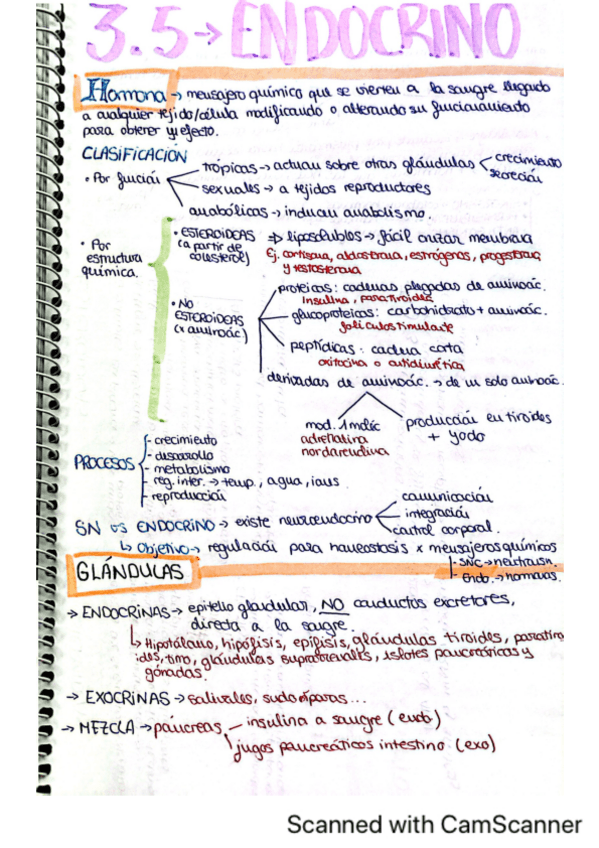 3.5→ENDOCRINO
Hormona → mensajero químico que se vierten a la sangre llegando
a cualquier tejido/célula modificando o alterando su funcionamiento
para obtener un efecto.
CLASIFICACIÓN
• Por función
trópicas → actuan sobre otras glándulas
crecimiento
secreción
sexuales → a tejidos reproductores
anabólicas → inducan anabolismo.
• Por
estructura
química.
• ESTEROIDEAS
(a partir de
colesterol)
⇒ liposolubles → fácil cruzar membrana
Ej. cortisona, aldosterona, estrógenos, progesterona
y testosterona
• NO
ESTEROIDEAS
(x aminoác)
proteicas: cadenas plegadas de aminoác.
Insulina, paratiroidea
glucoproteicas: carbohidrato + aminoác.
foliculoestimulante
peptídicas: cadena corta
oxitocina o antidiurética
derivadas de aminoác. → de un solo aminoác.
mod. 1 moléc
adrenalina
noradrenalina
producción en tiroides
+ yodo
PROCESOS
- crecimiento
- desarrollo
- metabolismo
- reg. inter. → temp., agua, iones
- reproducción
SN vs ENDOCRINO → existe neuroendocrino
comunicación
integración
control corporal.
↳ Objetivo → regulación para homeostasis x mensajeros químicos
- SNC → neutrasn.
- Endo. → hormonas.
GLÁNDULAS
→ ENDOCRINAS → epitelio glandular, NO conductos excretores,
directa a la sangre.
↳ Hipotálamo, hipófisis, epífisis, glándulas tiroides, paratiro
ides, timo, glándulas suprarrenales, islotes pancreáticas y
gónadas.
→ EXOCRINAS → salivales, sudoríparas...
→ MEZCLA → páncreas
insulina a sangre (endo)
jugos pancreáticos intestino. (exo)
Scanned with CamScanner